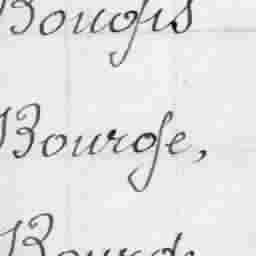 Bougis
Bourge,